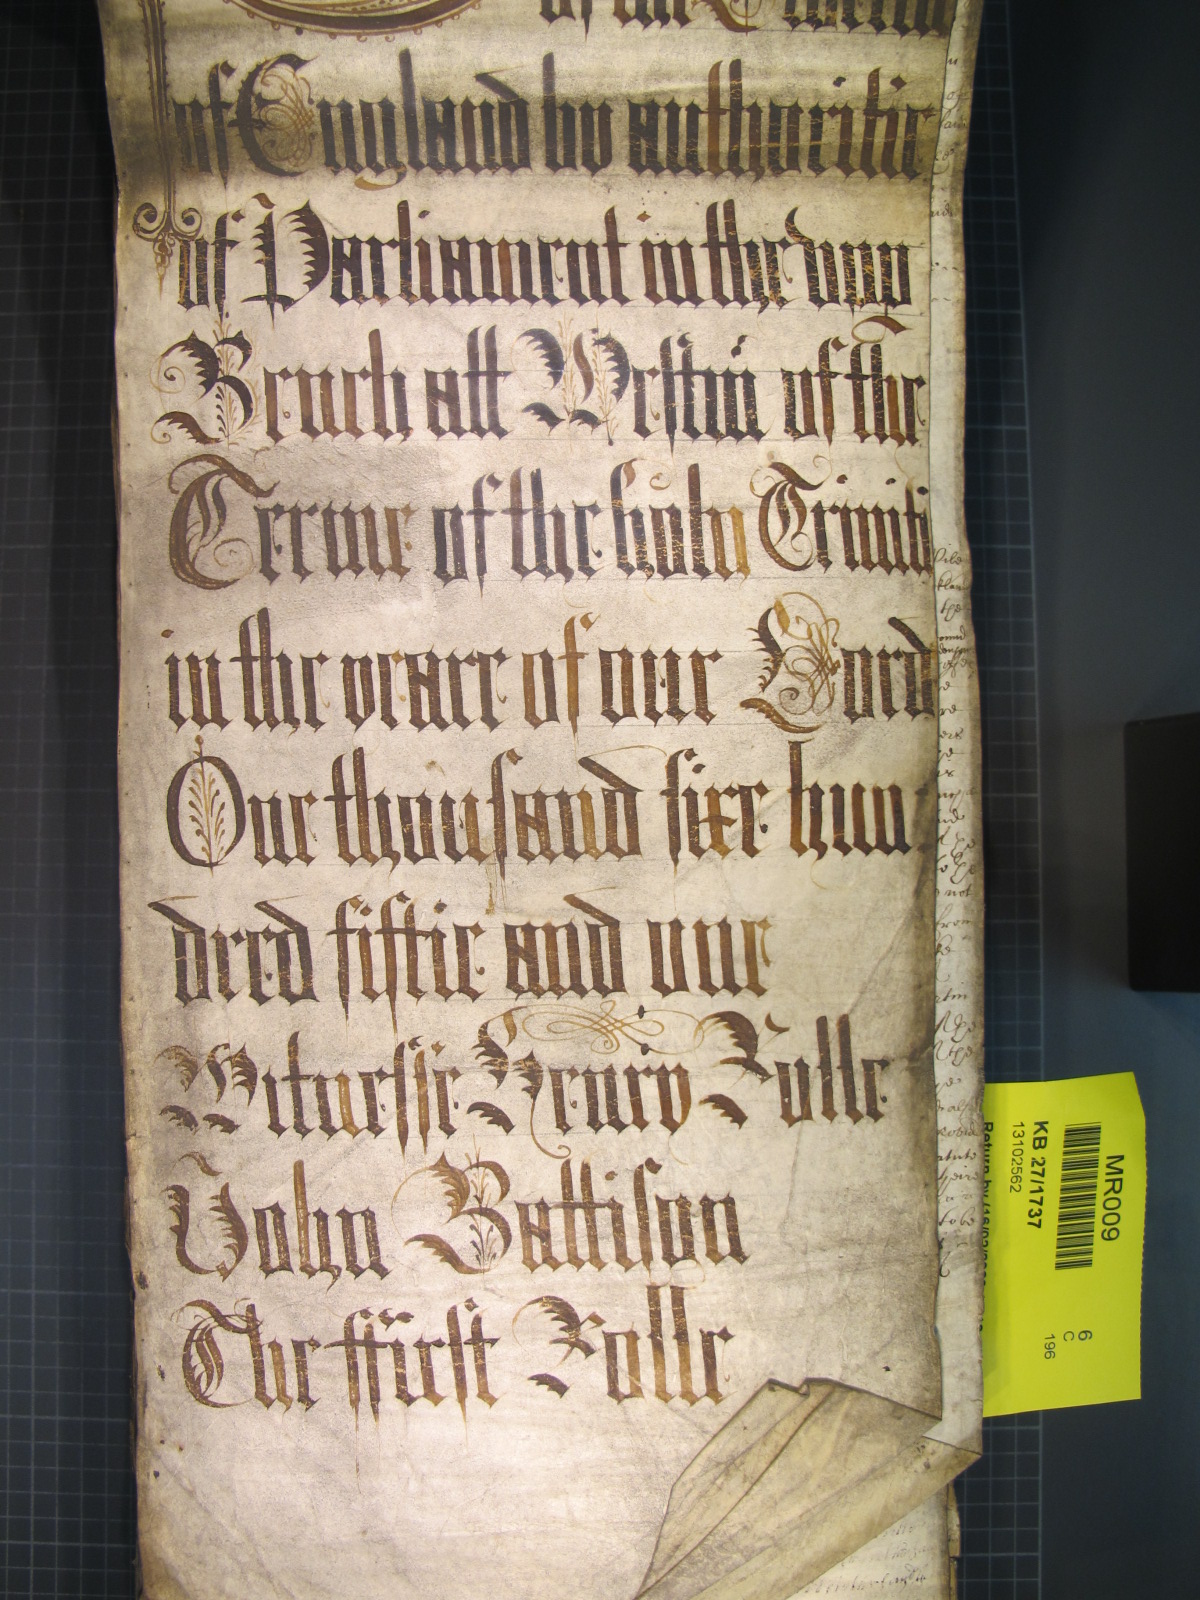 of the
of England by authoritie
of Parliament in the vpp
Bench att Westm̄ of the
Terme of the holy Triniti
in the yeare of our Lord
One thousand sixe hun
dred fiftie and one
Witnesse Henry Rolle
John Battison
The ffirst Rolle
MR009
KB 27/1737
13102562
6
C
196